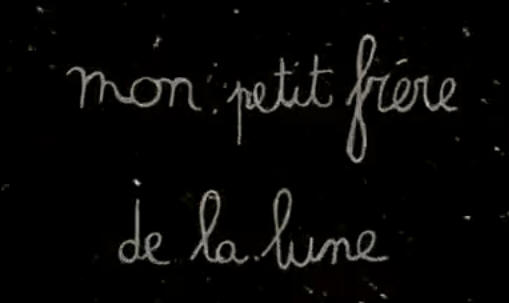 mon petit frère
de la lune